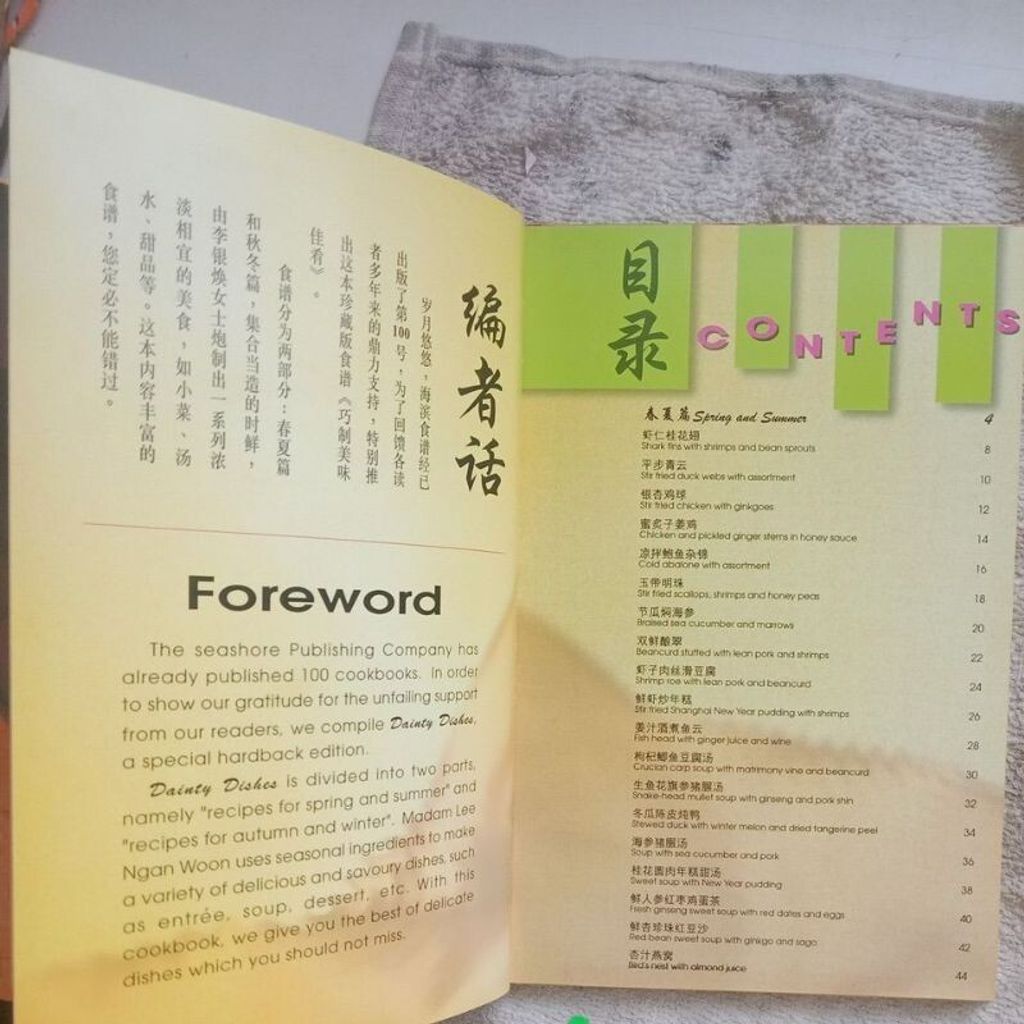 编者话
岁月悠悠，海滨食谱经已
出版了第100号，为了回馈各读
者多年来的鼎力支持，特别推
出这本珍藏版食谱《巧制美味
佳肴》。
食谱分为两部分：春夏篇
和秋冬篇，集合当造的时鲜，
由李银焕女士炮制出一系列浓
淡相宜的美食，如小菜、汤
水、甜品等。这本内容丰富的
食谱，您定必不能错过。
Foreword
The seashore Publishing Company has
already published 100 cookbooks. In order
to show our gratitude for the unfailing support
from our readers, we compile Dainty Dishes,
a special hardback edition.
Dainty Dishes is divided into two parts,
namely "recipes for spring and summer" and
"recipes for autumn and winter". Madam Lee
Ngan Woon uses seasonal ingredients to make
a variety of delicious and savoury dishes, such
as entrée, soup, dessert, etc. With this
cookbook, we give you the best of delicate
dishes which you should not miss.
目录
CONTENTS
春夏篇 Spring and Summer 4
虾仁桂花翅
Shark fins with shrimps and bean sprouts 8
平步青云
Stir fried duck webs with assortment 10
银杏鸡球
Stir fried chicken with ginkgoes 12
蜜炙子姜鸡
Chicken and pickled ginger stems in honey sauce 14
凉拌鲍鱼杂锦
Cold abalone with assortment 16
玉带明珠
Stir fried scallops, shrimps and honey peas 18
节瓜焖海参
Braised sea cucumber and marrows 20
双鲜酿翠
Beancurd stuffed with lean pork and shrimps 22
虾子肉丝滑豆腐
Shrimp roe with lean pork and beancurd 24
鲜虾炒年糕
Stir fried Shanghai New Year pudding with shrimps 26
姜汁酒煮鱼云
Fish head with ginger juice and wine 28
枸杞鲫鱼豆腐汤
Crucian carp soup with matrimony vine and beancurd 30
生鱼花旗参猪𦟌汤
Snake-head mullet soup with ginseng and pork shin 32
冬瓜陈皮炖鸭
Stewed duck with winter melon and dried tangerine peel 34
海参猪𦟌汤
Soup with sea cucumber and pork 36
桂花圆肉年糕甜汤
Sweet soup with New Year pudding 38
鲜人参红枣鸡蛋茶
Fresh ginseng sweet soup with red dates and eggs 40
鲜杏珍珠红豆沙
Red bean sweet soup with ginkgo and sago 42
杏汁燕窝
Bird's nest with almond juice 44